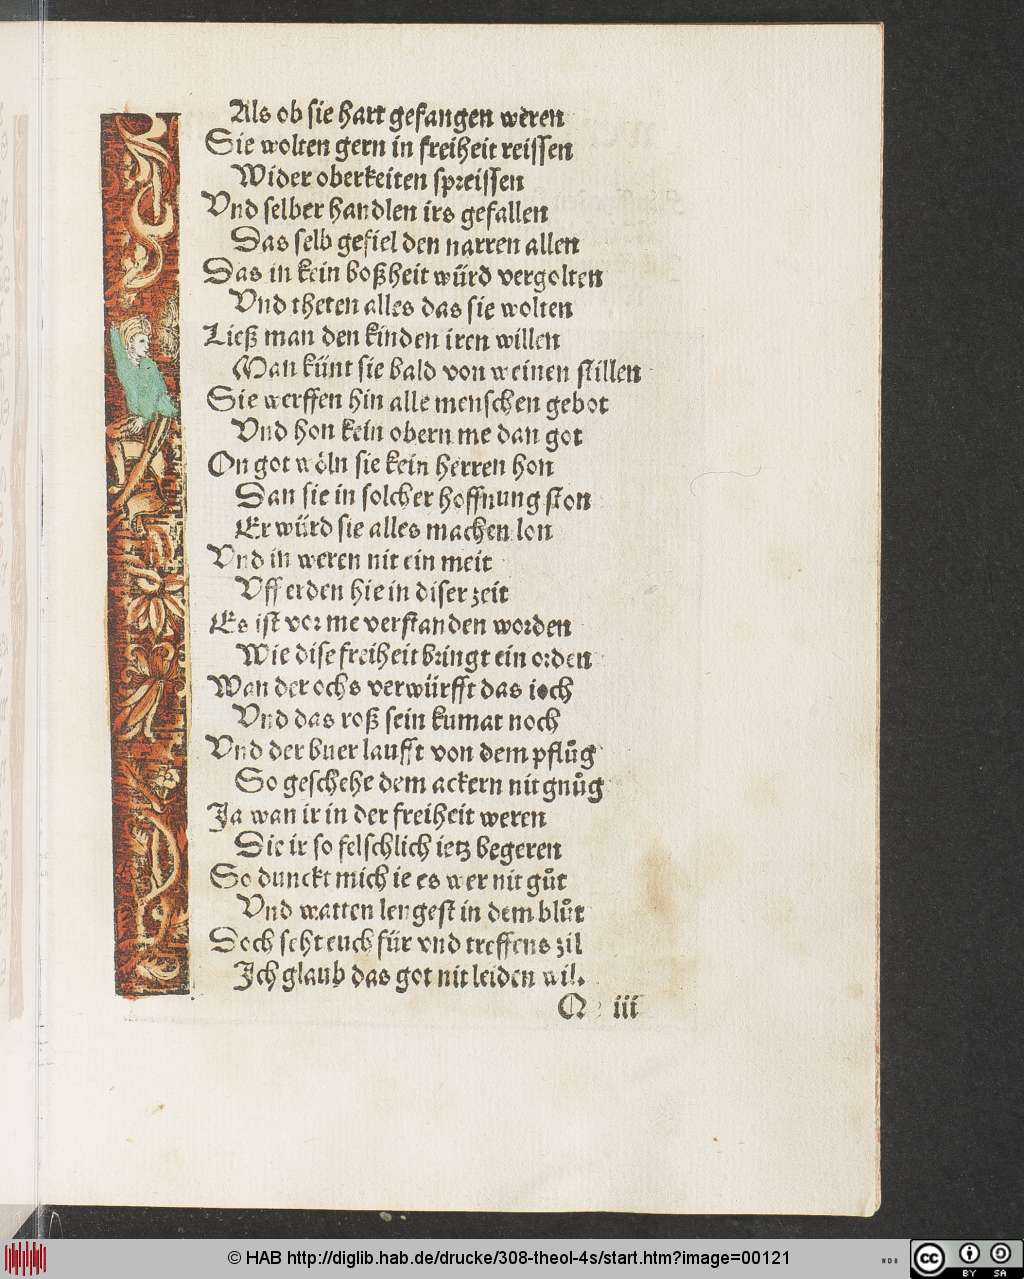 Als ob sie hart gefangen weren
Sie wolten gern in freiheit reissen
Wider oberkeiten spreissen
Vnd selber handlen irs gefallen
Das selb gefiel den narren allen
Das in kein boßheit würd vergolten
Vnd theten alles das sie wolten
Ließ man den kinden iren willen
Man künt sie bald von weinen stillen
Sie werffen hin alle menschen gebot
Vnd hon kein obern me dan got
On got wöln sie kein herren hon
Dan sie in solcher hoffnung ston
Er würd sie alles machen lon
Vnd in weren nit ein meit
Vff erden hie in diser zeit
Es ist vor me verstanden worden
Wie dise freiheit bringt ein orden
Wan der ochs verwürfft das ioch
Vnd das roß sein kumat noch
Vnd der buer laufft von dem pflůg
So geschehe dem ackern nit gnůg
Ja wan ir in der freiheit weren
Die ir so felschlich ietz begeren
So dunckt mich ie es wer nit gůt
Vnd watten lengest in dem blůt
Doch seht euch für vnd treffens zil
Ich glaub das got nit leiden wil.
iii
© HAB http://diglib.hab.de/drucke/308-theol-4s/start.htm?image=00121
WDB
cc BY SA